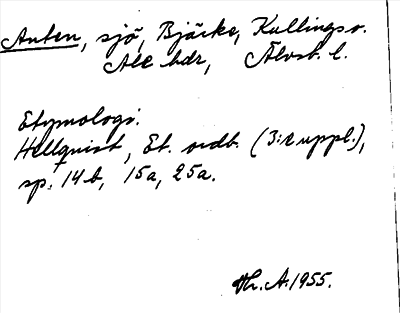 Anten, sjö, Bjärke, Kullings o.
Ale hdr, Älvsb. l.
Etymologi.
Hellquist, Et. ordb. (3:e uppl.),
sp. 14b, 15a, 25a.
Hr. A. 1955.